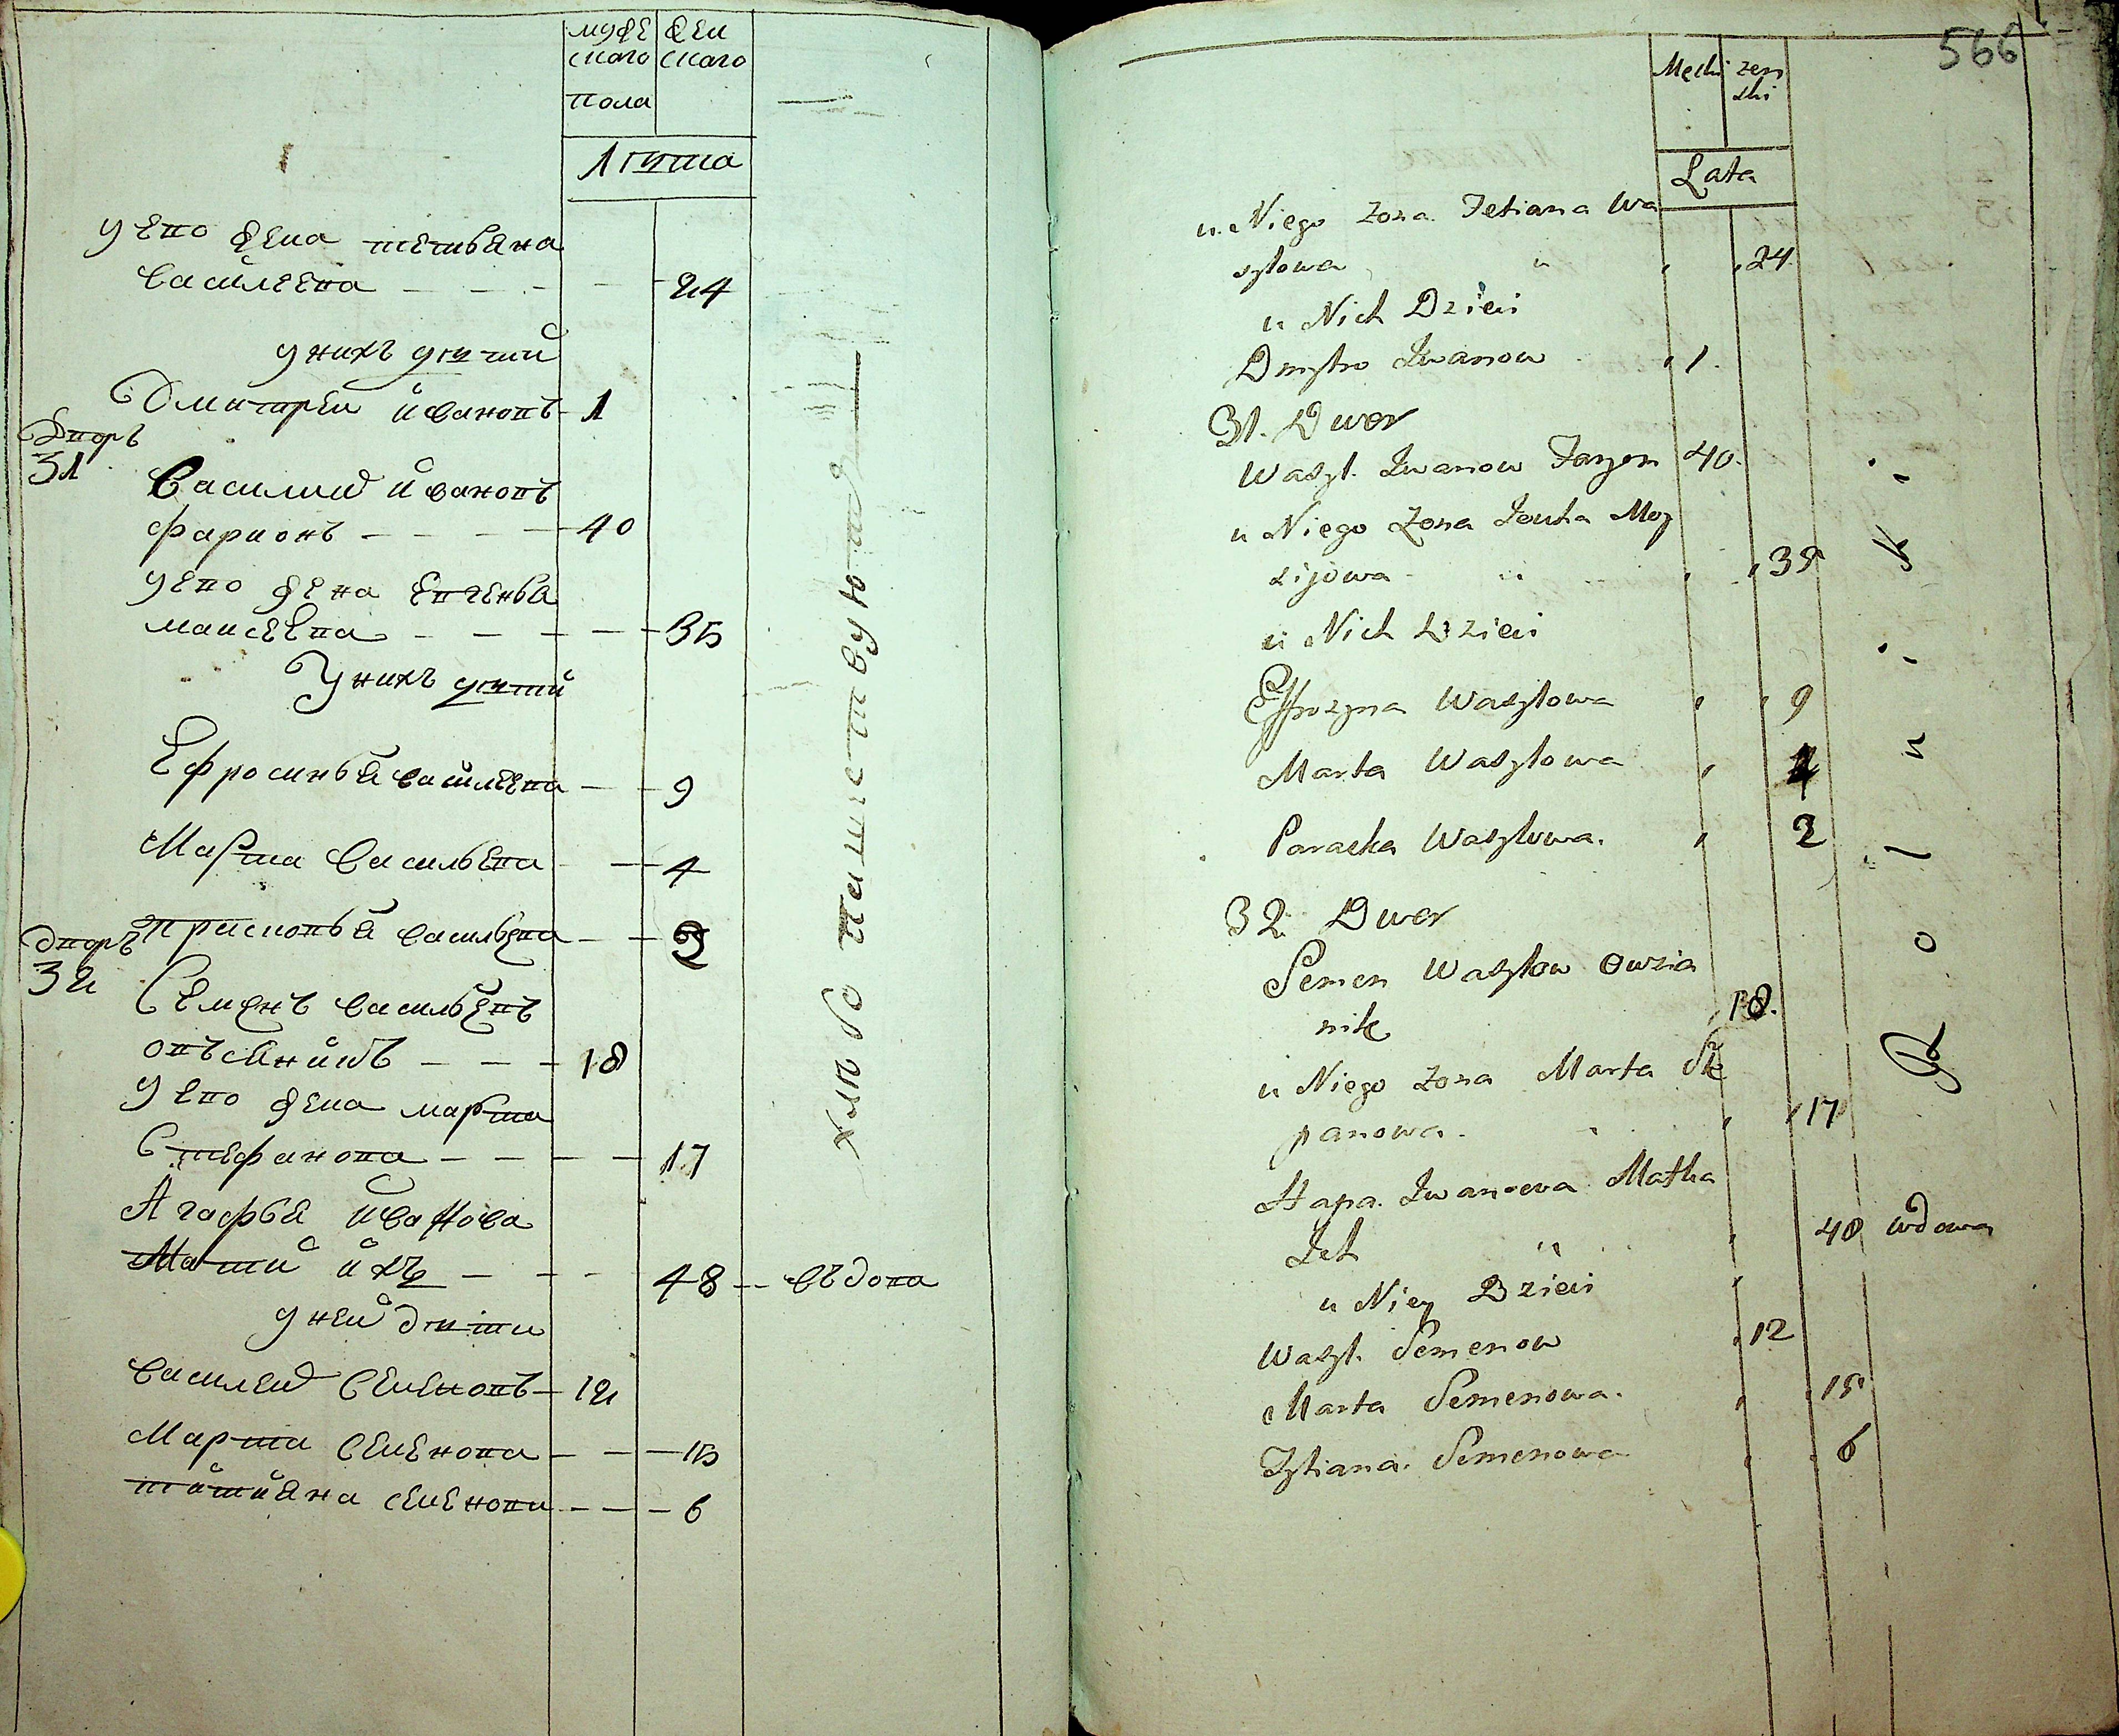 муже ска го
жен ска го
пола
лѣта
у его жена тетьяна
васи́леева 24
у нихъ дѣти
Дмитрей ивановъ 1
Дворъ
31
Василий ивановъ
фарионъ 40
у его жена евгенья
маисеева 35
У нихъ дѣти
Ефросинья васи́леева 9
Марта васильева 4
Прасковья васильева 2
дворъ
32
Семенъ васильевъ
овъсяникъ 18
у его жена марта
Стефанова 17
Агафья иванова
Мати ихъ 48 въдова
у ней дѣти
василей Семеновъ 12
Марта Семенова 15
титияна семенова 6
хлѣбопашествуютъ
566
Męski
żen ski
Lata
u Niego żona Tetiana Wa
sylowa 24
u Nich Dzieci
Dmytro Iwanow 1
31. Dwor
Wasyl. Iwanow Faryon 40.
u Niego żona Jewha Moy
sijowa 35
u Nich Dzieci
Effrozyna Wasylowa 9
Marta Wasylowa 4
Paraska Wasylowa. 2
32 Dwor
Semen Wasylow Owsia
nik 18.
u Niego żona Marta Ste
panowa. 17
Hapa. Iwanowa Matka
Ich 48 wdowa
u Niey Dzieci
Wasyl. Semenow 12
Marta Semenowa. 15
Tytiana. Semenowa 6
Rolniki